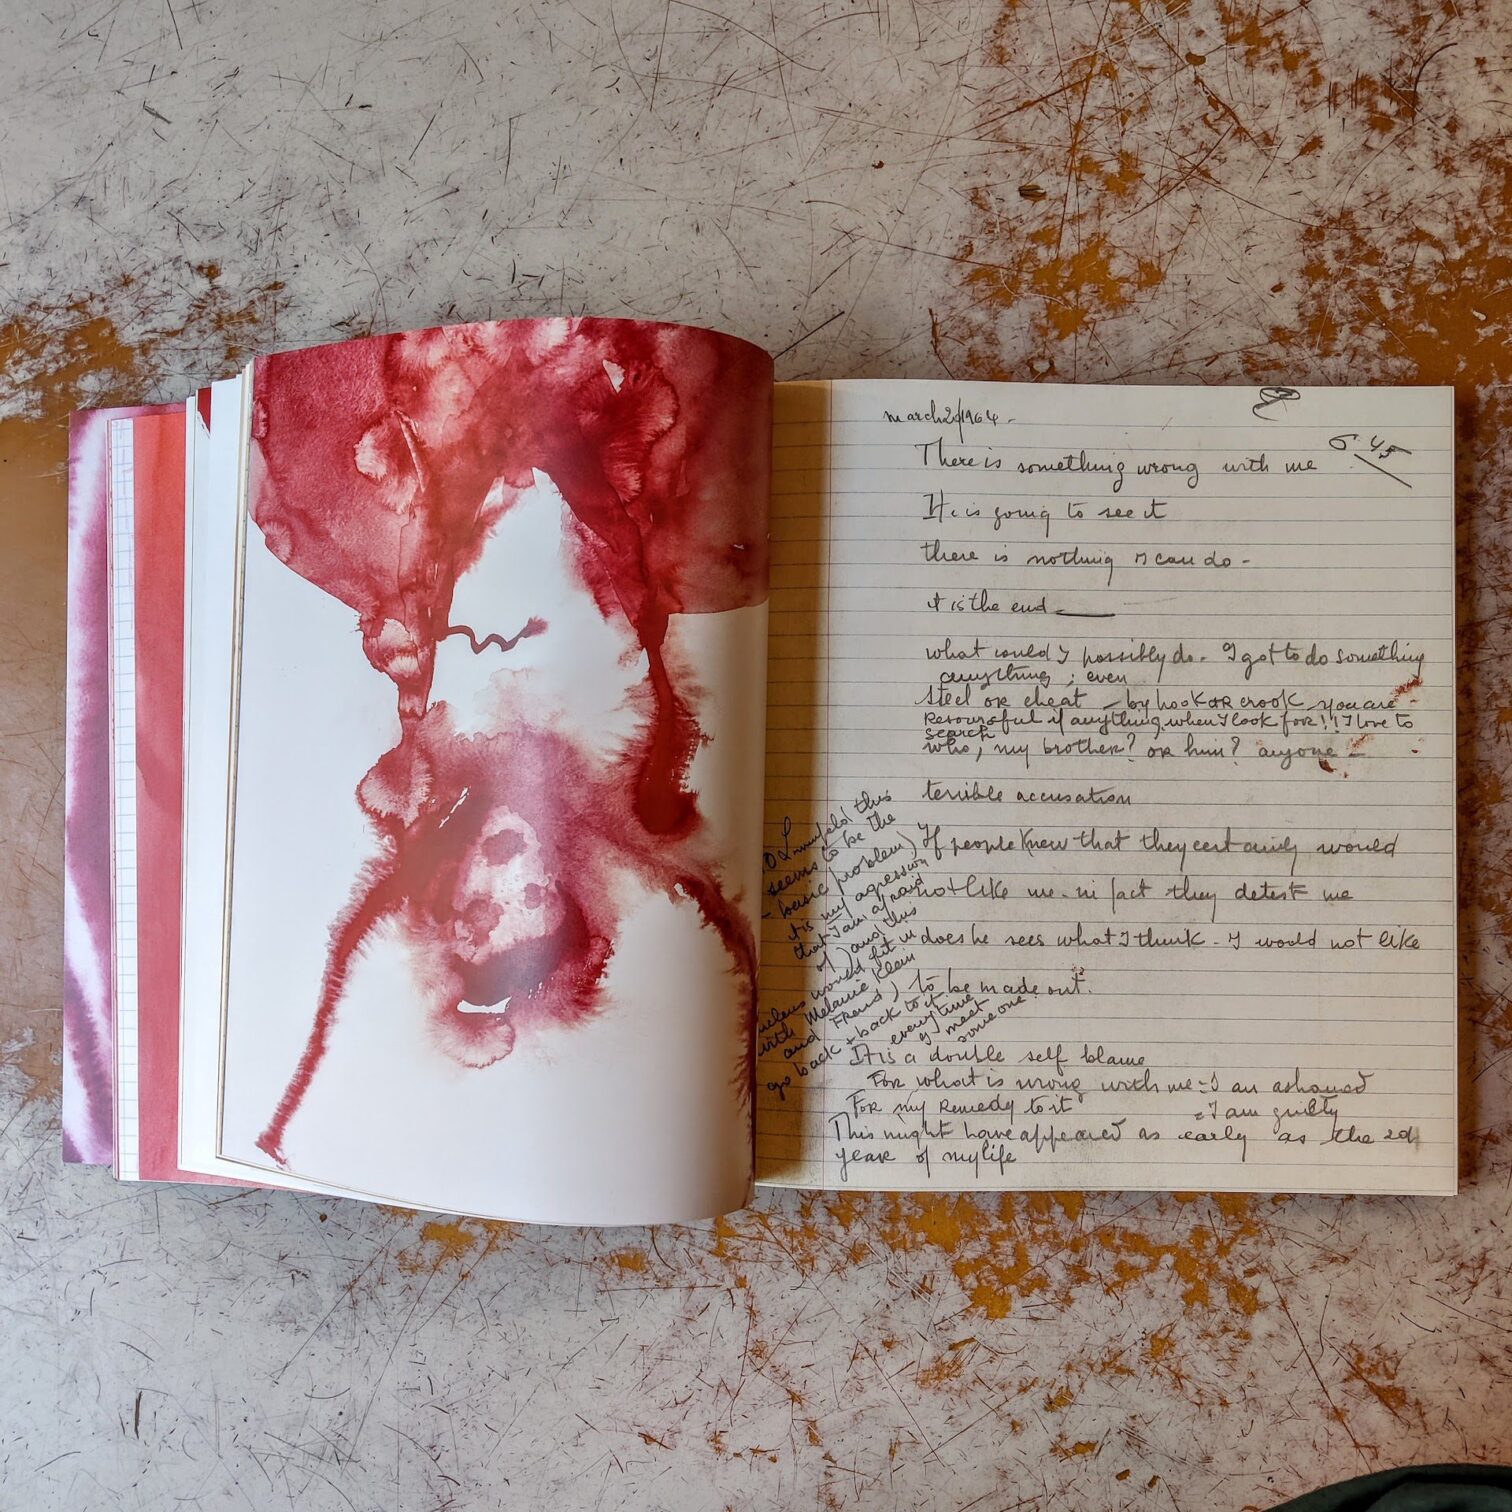 march 20 1964 -
6.45
There is something wrong with me
He is going to see it
there is nothing I can do -
it is the end
what could I possibly do - I got to do something
anything ; even
steel or cheat - by hook or crook - you are
Resourceful if anything, when I look for!! I love to
search
who, my brother? or him? anyone -
terrible accusation
If people knew that they certainly would
not like me - in fact they detest me
does he sees what I think - I would not like
to be made out.
this
seems to be the
basic problem)
it is my agression
that I am afraid
of) and this
would fit in
with Melanie Klein
and Freud)
go back + back to it
everytime
I meet
someone
It is a double self blame
For what is wrong with me = I am ashamed
For my Remedy to it = I am guilty
This might have appeared as early as the 2d
year of my life